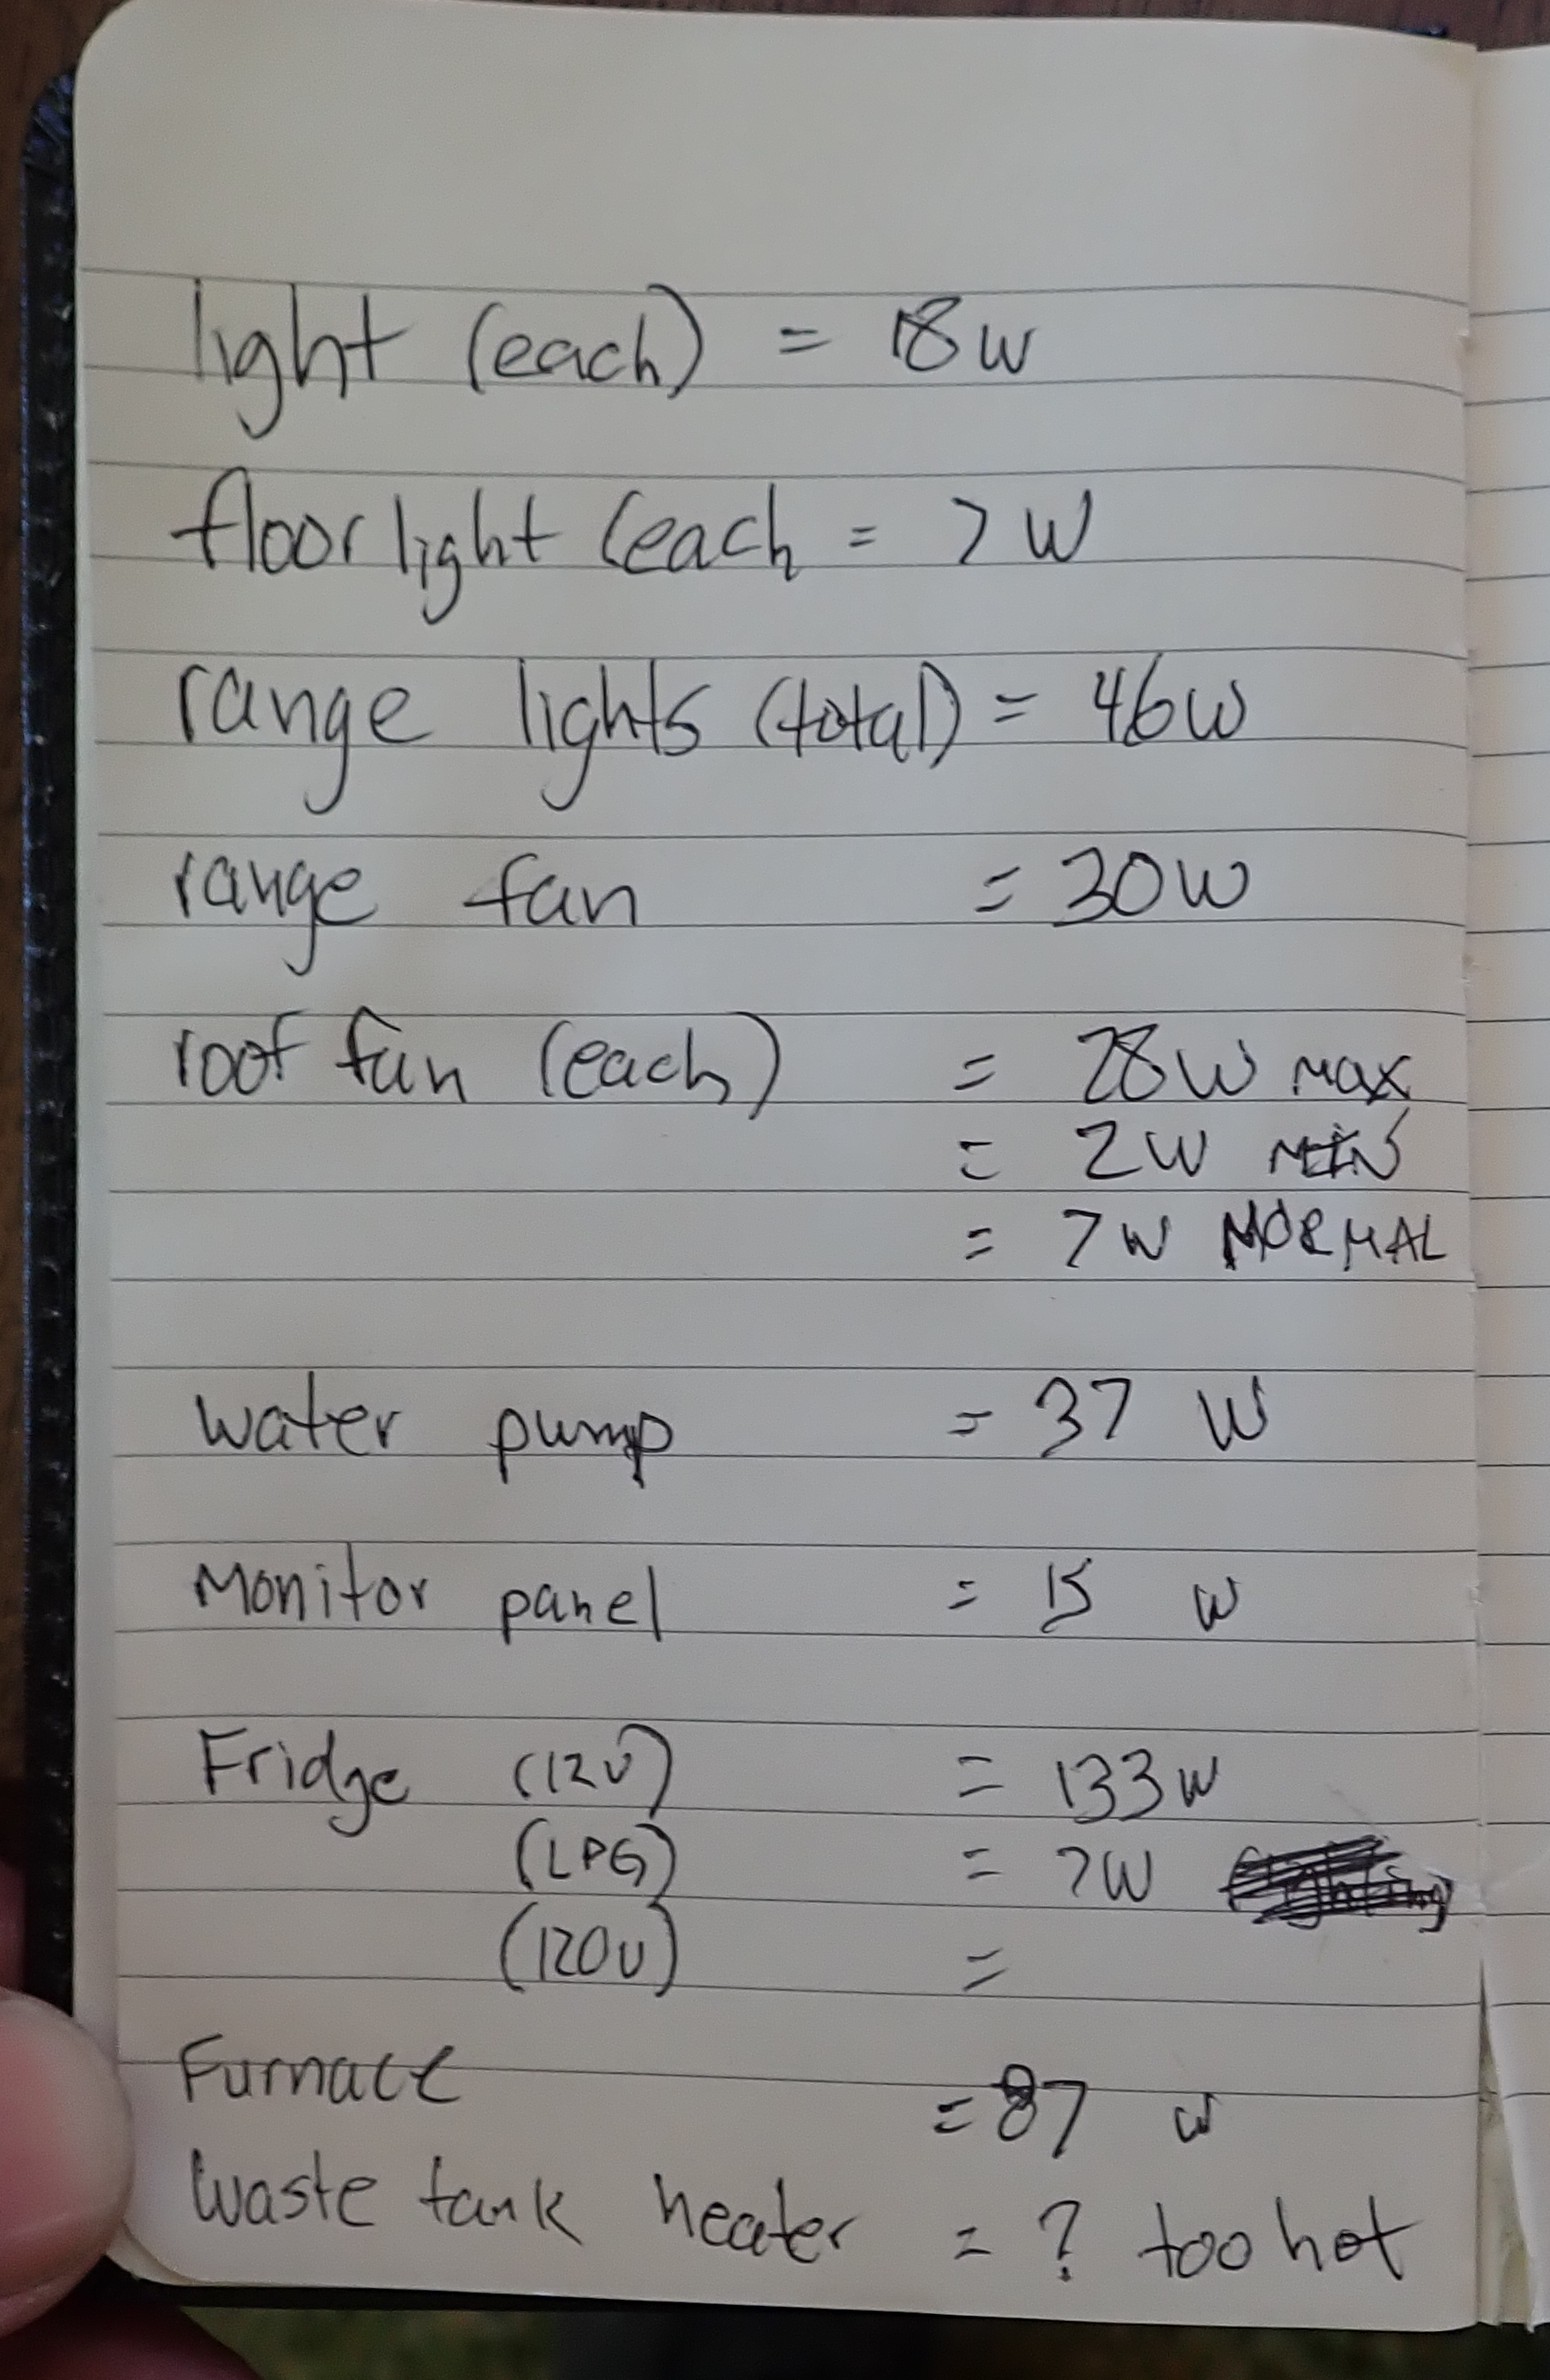 light (each) = 18w
floor light (each = 7W
range lights (total) = 46w
range fan = 30W
roof fan (each) = 28W MAX
= 2W MIN
= 7W NORMAL
water pump = 37 W
Monitor panel = 15 W
Fridge (12V) = 133W
(LPG) = 7W
(120V) =
Furnace = 87 W
Waste tank heater = ? too hot